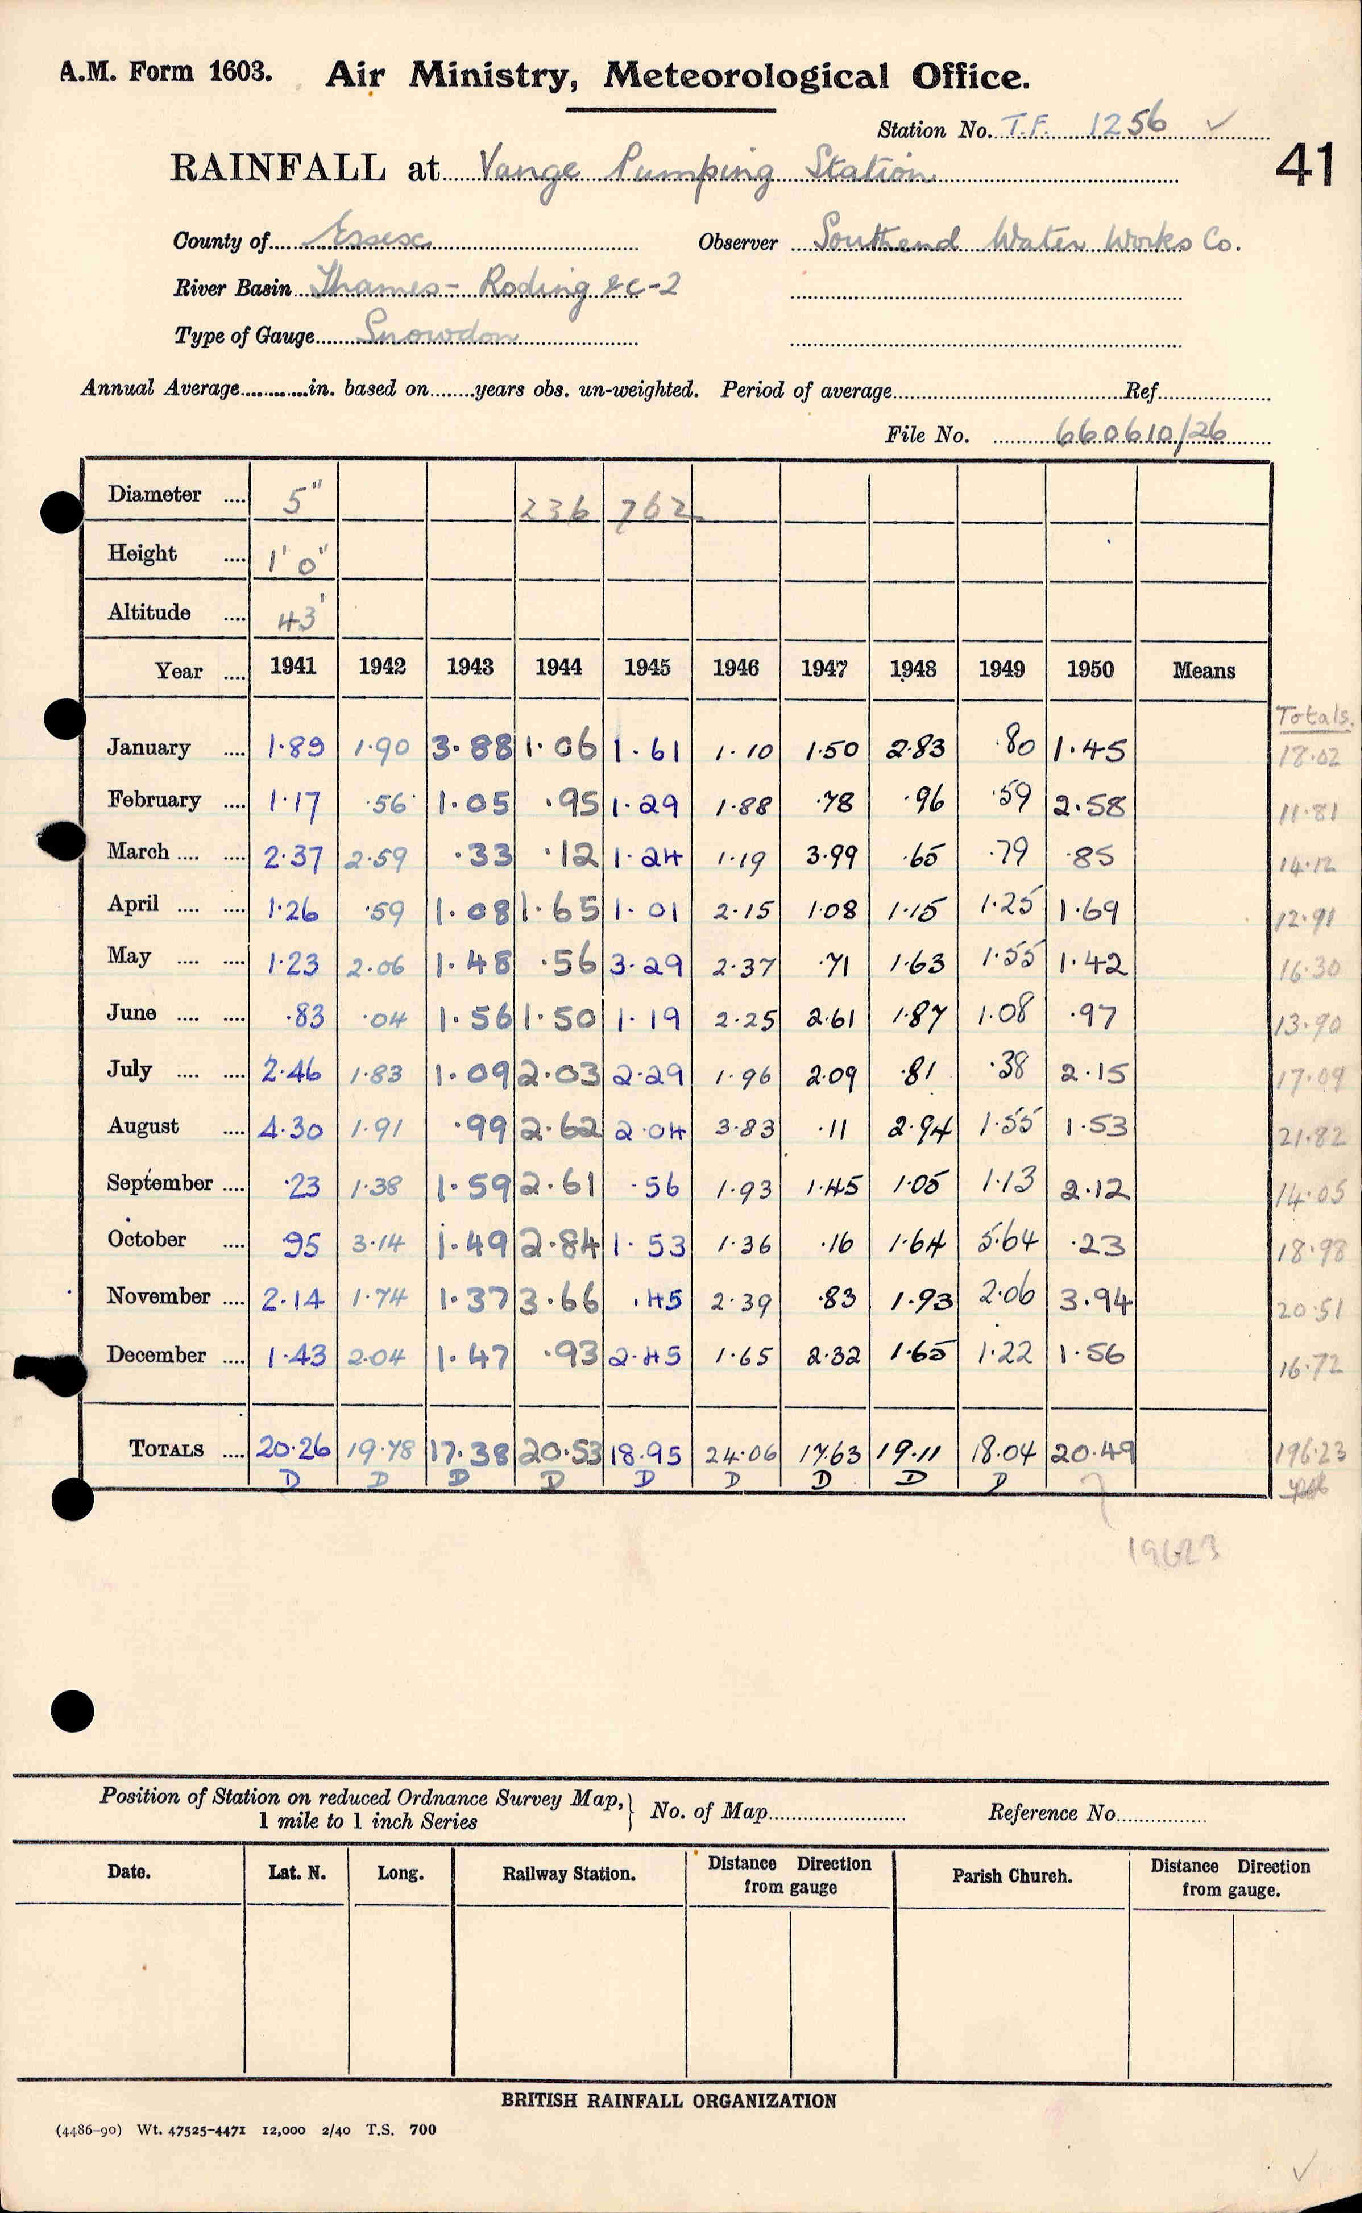 A.M. Form 1603. Air Ministry, Meteorological Office.
Station No. T.F. 1256 ✓
41
RAINFALL at Vange Pumping Station
County of Essex Observer Southend Water Works Co.
River Basin Thames - Roding &c-2
Type of Gauge Snowdon
Annual Average in. based on years obs. un-weighted. Period of average Ref
File No. 660610/26
Diameter 5" 236 762
Height 1' 0"
Altitude 43'
Year 1941 1942 1943 1944 1945 1946 1947 1948 1949 1950 Means
Totals.
January 1.89 1.90 3.88 1.06 1.61 1.10 1.50 2.83 .80 1.45 18.02
February 1.17 .56 1.05 .95 1.29 1.88 .78 .96 .59 2.58 11.81
March 2.37 2.59 .33 .12 1.24 1.19 3.99 .65 .79 .85 14.12
April 1.26 .59 1.08 1.65 1.01 2.15 1.08 1.15 1.25 1.69 12.91
May 1.23 2.06 1.48 .56 3.29 2.37 .71 1.63 1.55 1.42 16.30
June .83 .04 1.56 1.50 1.19 2.25 2.61 1.87 1.08 .97 13.90
July 2.46 1.83 1.09 2.03 2.29 1.96 2.09 .81 .38 2.15 17.09
August 4.30 1.91 .99 2.62 2.04 3.83 .11 2.94 1.55 1.53 21.82
September .23 1.38 1.59 2.61 .56 1.93 1.45 1.05 1.13 2.12 14.05
October 95 3.14 1.49 2.84 1.53 1.36 .16 1.64 5.64 .23 18.98
November 2.14 1.74 1.37 3.66 .45 2.39 .83 1.93 2.06 3.94 20.51
December 1.43 2.04 1.47 .93 2.45 1.65 2.32 1.65 1.22 1.56 16.72
TOTALS 20.26 19.78 17.38 20.53 18.95 24.06 17.63 19.11 18.04 20.49 196.23
D D D D D D D D D
19623
Position of Station on reduced Ordnance Survey Map, } No. of Map Reference No.
1 mile to 1 inch Series
Date. Lat. N. Long. Railway Station. Distance Direction from gauge Parish Church. Distance Direction from gauge.
BRITISH RAINFALL ORGANIZATION
(4486-90) Wt. 47525-4471 12,000 2/40 T.S. 700
✓